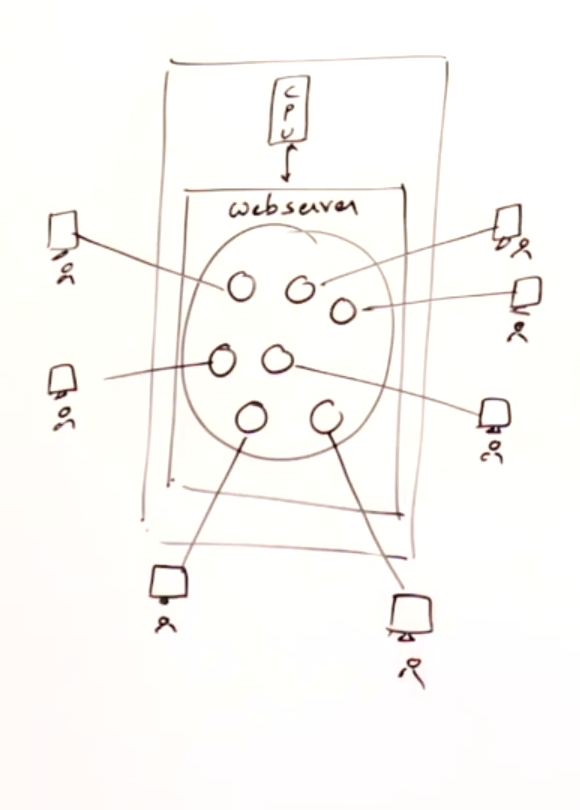 CPU
webserver